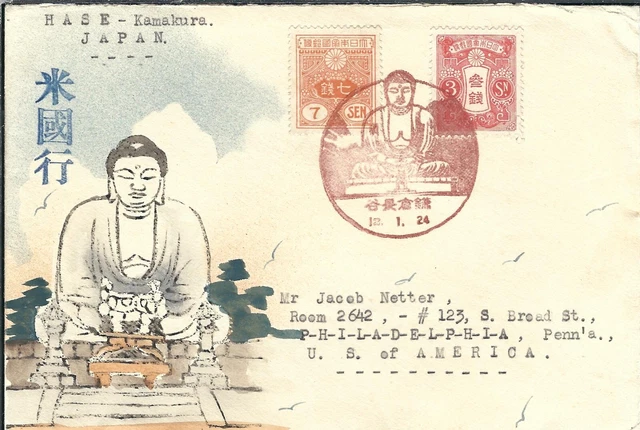 HASE - Kamakura.
JAPAN.
米國行
便郵國帝本日大
錢七
7 SEN
便郵國帝本日大
3 SN
谷長倉鎌
12. 1. 24
Mr Jacob Netter,
Room 2642, - # 123, S. Broad St.,
P-H-I-L-A-D-E-L-P-H-I-A, Penn'a.,
U. S. of AMERICA.